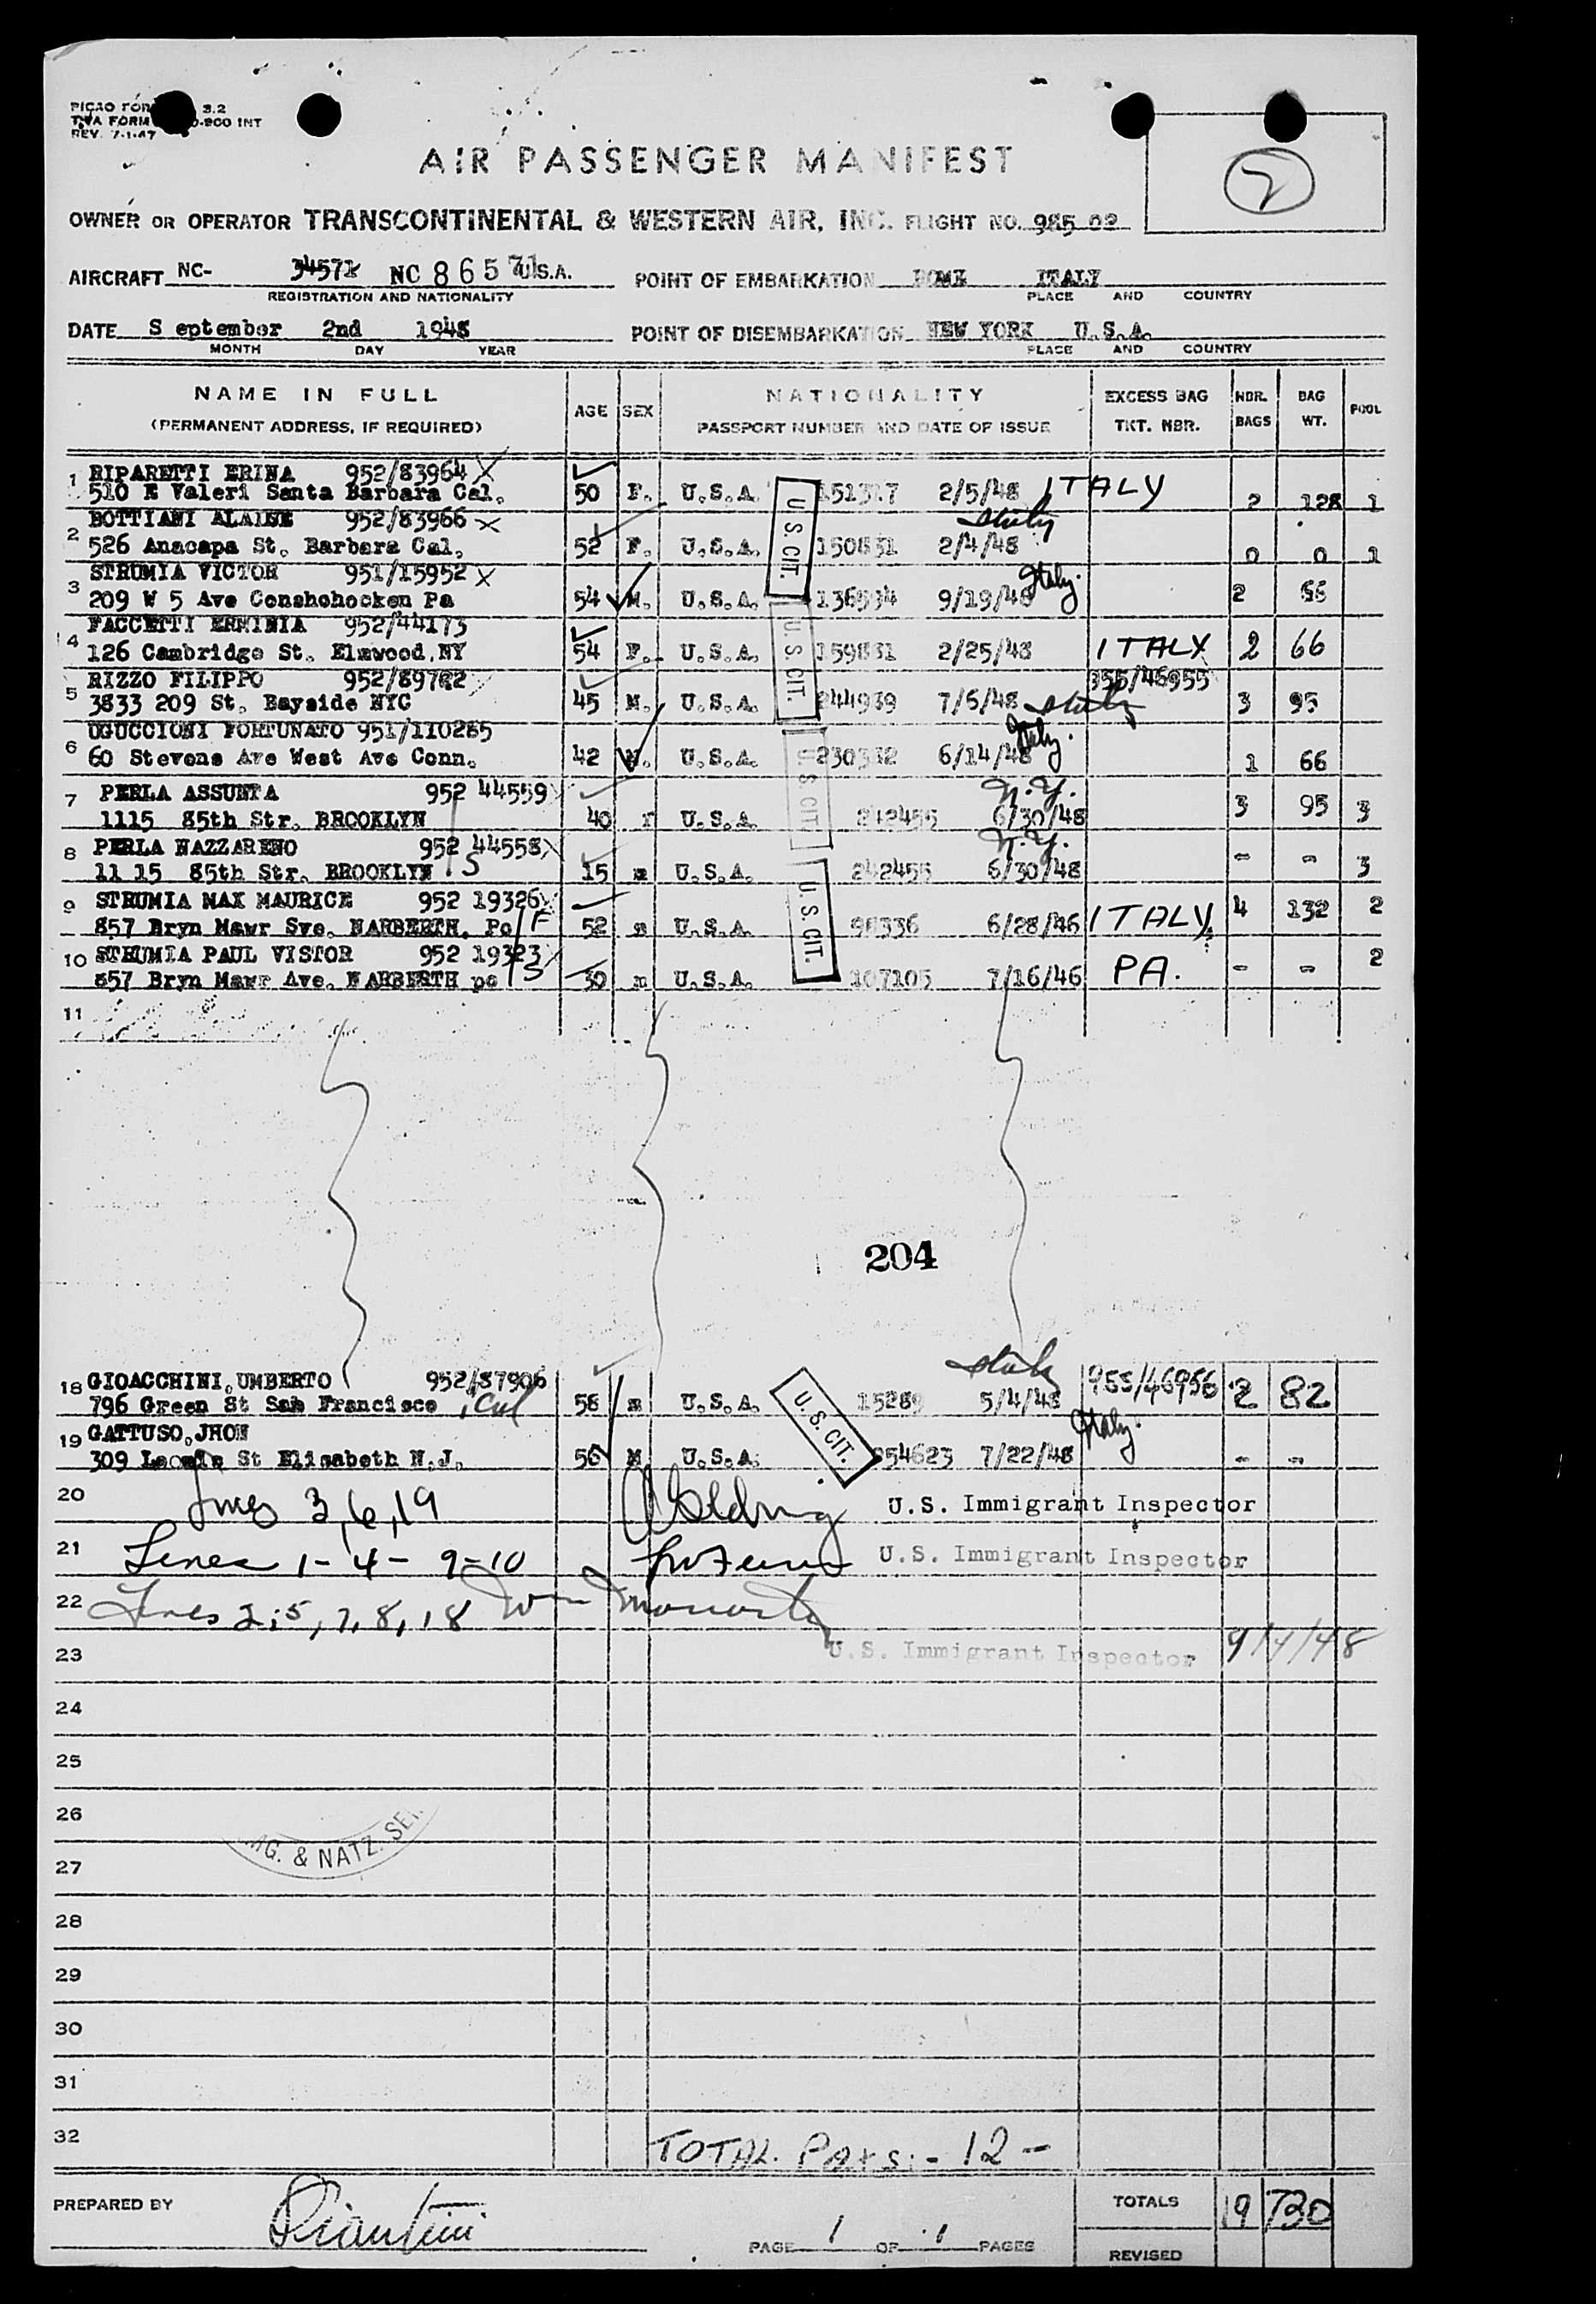 PICAO FOR 3.2
TWA FORM 0-800 INT
REV. 7-1-47
AIR PASSENGER MANIFEST
2
OWNER OR OPERATOR TRANSCONTINENTAL & WESTERN AIR, INC. FLIGHT NO. 985 02
AIRCRAFT NC- 34571 NC 86571 U.S.A. POINT OF EMBARKATION ROME ITALY
REGISTRATION AND NATIONALITY PLACE AND COUNTRY
DATE S eptember 2nd 1948 POINT OF DISEMBARKATION NEW YORK U.S.A.
MONTH DAY YEAR PLACE AND COUNTRY
NAME IN FULL AGE SEX NATIONALITY EXCESS BAG NBR. BAG POOL
(PERMANENT ADDRESS, IF REQUIRED) PASSPORT NUMBER AND DATE OF ISSUE TKT. NBR. BAGS WT.
1 RIPARETTI ERINA 952/83964 X
510 E Valeri Santa Barbara Cal. 50 F. U.S.A. 151317 2/5/48 ITALY 2 128 1
BOTTIANI ALAINE 952/83966 X Italy
2 526 Anacapa St. Barbara Cal. 52 F. U.S.A. 150831 2/4/48 0 0 1
STRUMIA VICTOR 951/15952 X Italy.
3 209 W 5 Ave Conshohocken Pa 54 M. U.S.A. 136594 9/19/48 2 66
FACCETTI ERMINIA 952/44173
4 126 Cambridge St. Elmwood,NY 54 F. U.S.A. 159831 2/25/48 ITALY 2 66
RIZZO FILIPPO 952/89782 955/46955
5 3833 209 St. Bayside NYC 45 M. U.S.A. 244939 7/6/48 Italy 3 95
UGUCCIONI FORTUNATO 951/110285 Italy.
6 60 Stevens Ave West Ave Conn. 42 M. U.S.A. 230332 6/14/48 1 66
7 PERLA ASSUNTA 952 44559 N.Y.
1115 85th Str. BROOKLYN 40 F U.S.A. 242455 6/30/48 3 95 3
8 PERLA NAZZARENO 952 44558 N.Y.
11 15 85th Str. BROOKLYN S 15 m U.S.A. 242455 6/30/48 - - 3
9 STRUMIA MAX MAURICE 952 19326
857 Bryn Mawr Sve. NARBERTH. Pc F 52 m U.S.A. 98336 6/28/46 ITALY. 4 132 2
10 STRUMIA PAUL VISTOR 952 19323
857 Bryn Mawr Ave. NARBERTH pc S 39 m U.S.A. 107105 7/16/46 PA. - - 2
U.S. CIT.
U.S. CIT.
U.S. CIT.
U.S. CIT.
11
204
18 GIOACCHINI,UMBERTO 952/87906 Italy 955/46956
796 Green St San Francisco , Cal 58 m U.S.A. 15289 5/4/48 2 82
U.S. CIT.
19 GATTUSO,JHON Italy.
309 St Elisabeth N.J. 56 M U.S.A. 254623 7/22/48 - -
20 Lines 3,6,19 U.S. Immigrant Inspector
21 Lines 1-4-9-10 U.S. Immigrant Inspector
22 Lines 2,5,7,8,18 Wm Moriarty
23 U.S. Immigrant Inspector 9/4/48
24
25
26
MG. & NATZ. SE
27
28
29
30
31
32 TOTAL. Paxs:- 12 -
PREPARED BY TOTALS 19 730
PAGE 1 OF 1 PAGES REVISED